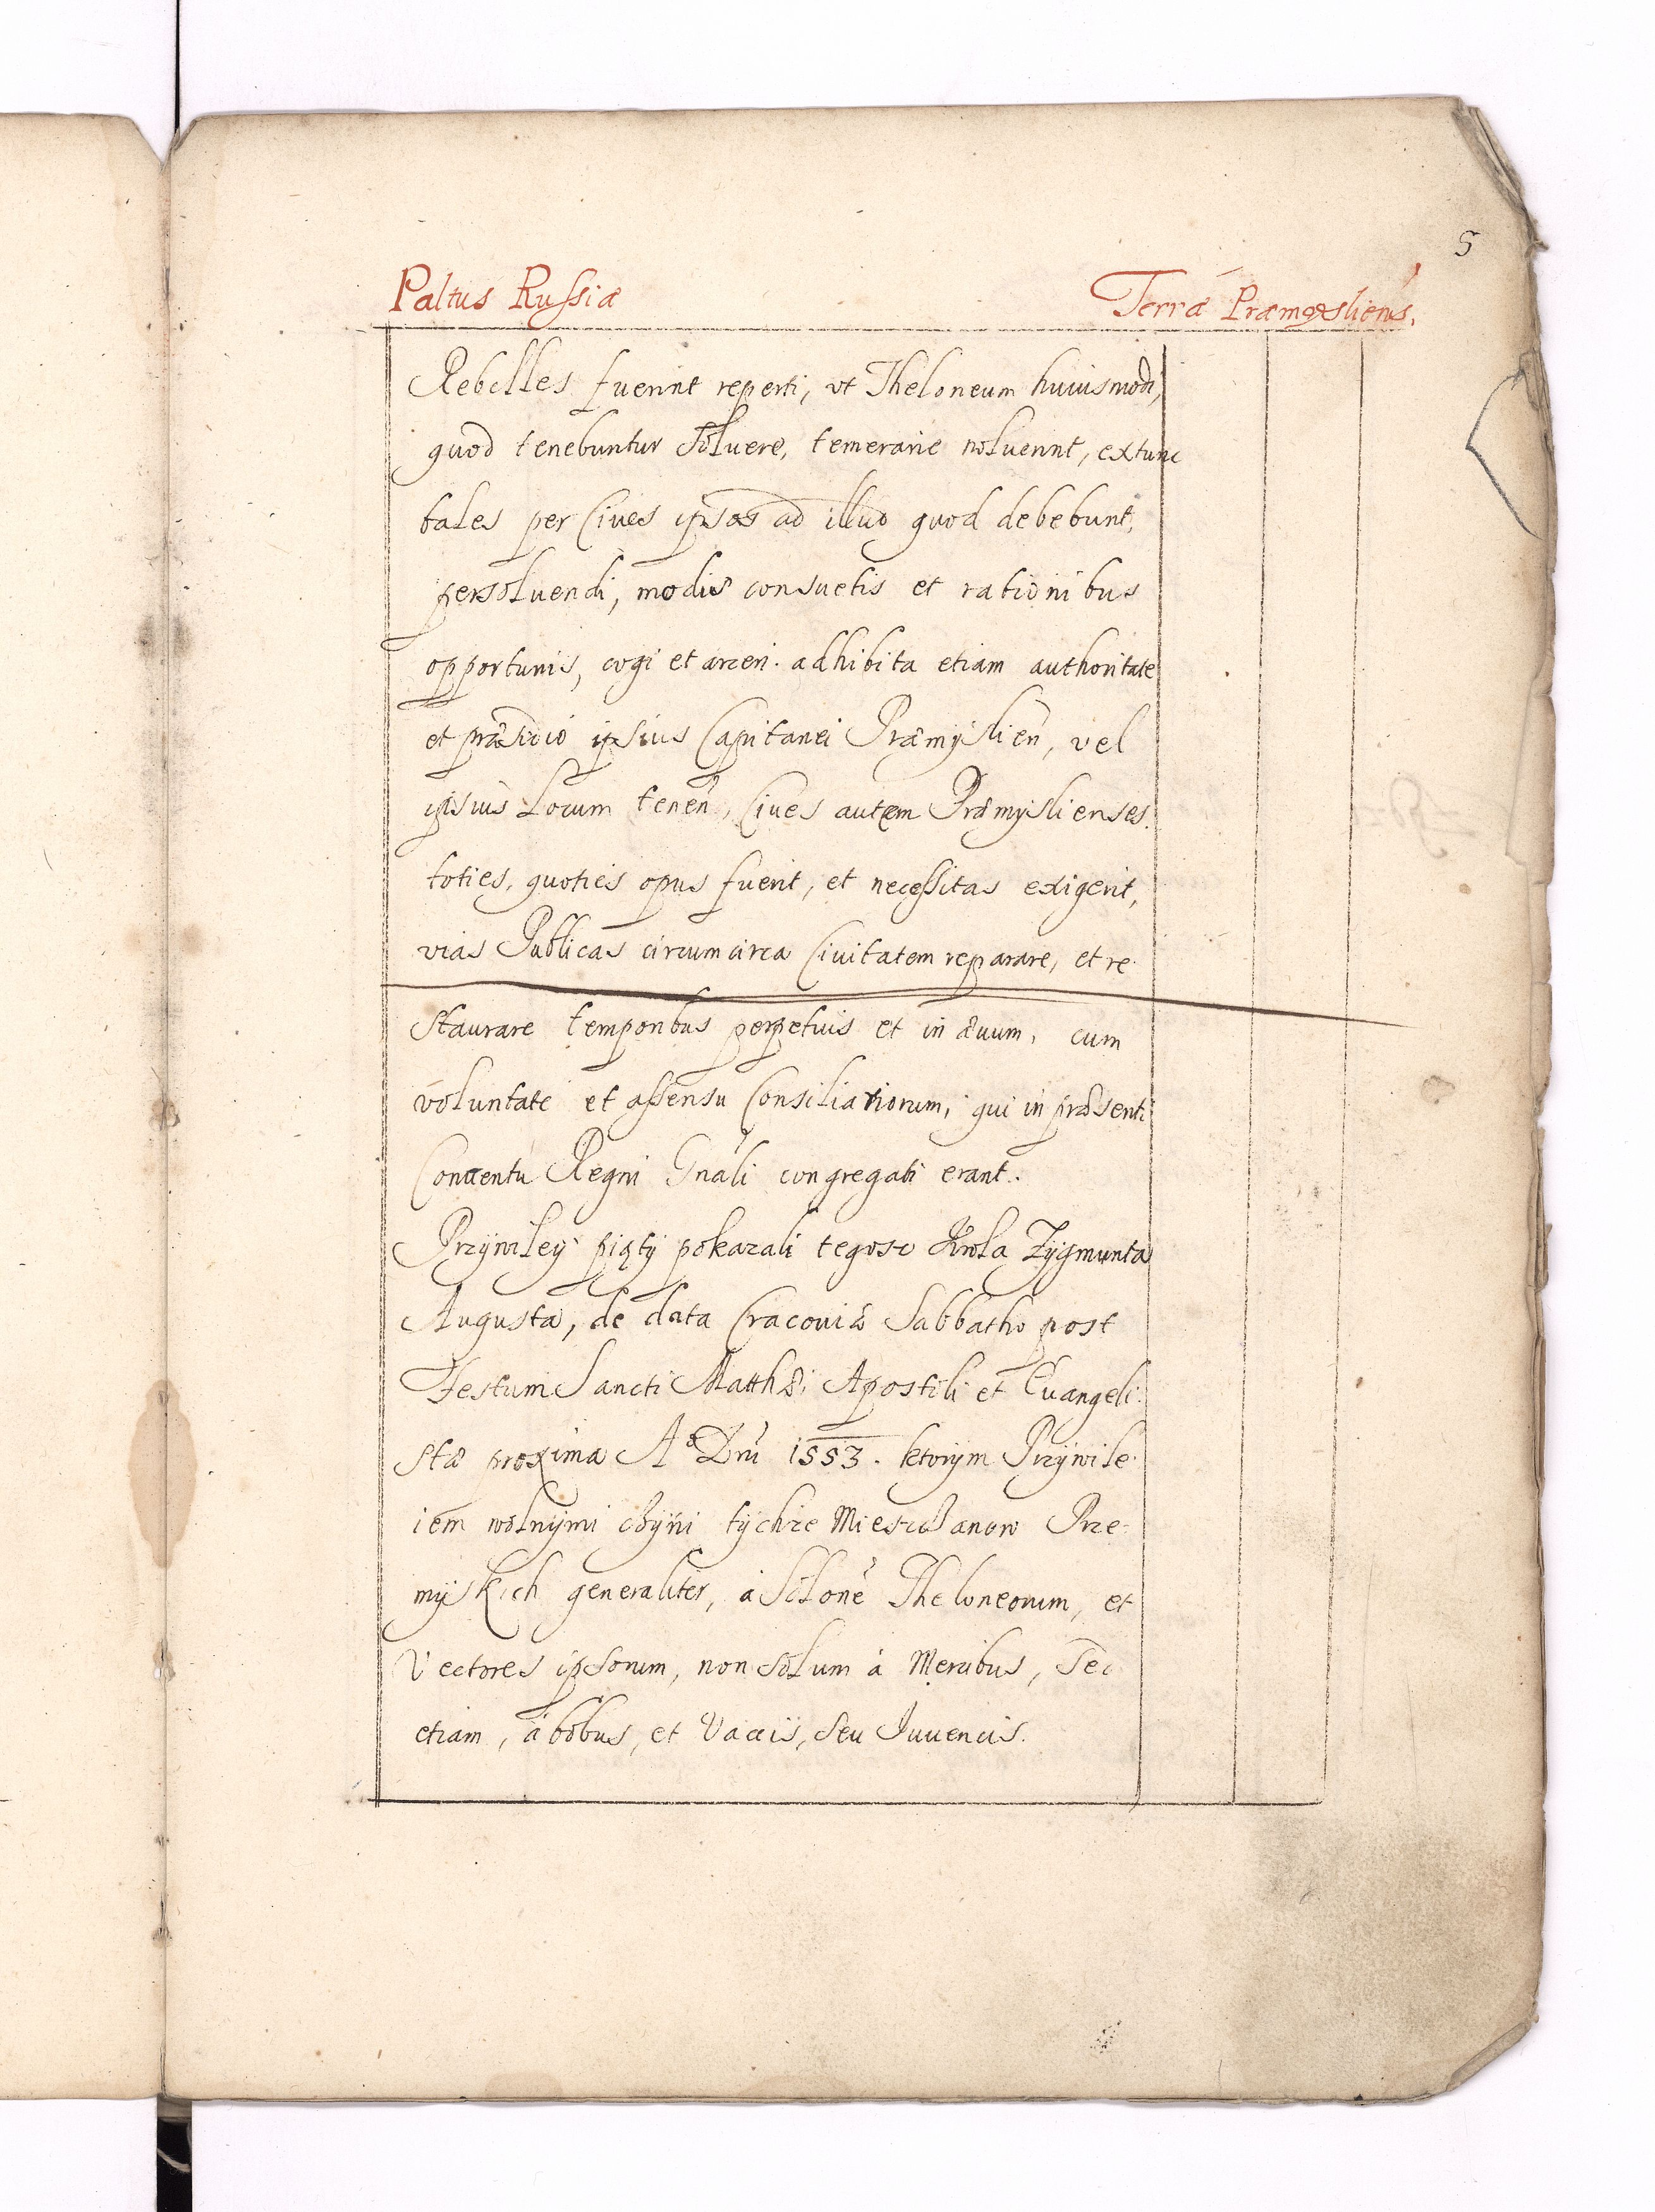 5
Paltus Russiæ Terræ Præmysliens.
Rebelles fuerint reperti, vt Theloneum huiusmodi,
quod tenebuntur soluere, temerarie noluerint, extunc
tales per Ciues ipsos ad illud quod debebunt,
persoluendi, modis consuetis et rationibus
opportunis, cogi et arceri. adhibita etiam authoritate
et præsidio ipsius Capitanei Præmyslien, vel
ipsius Locum tenen, Ciues autem Præmyslienses.
toties, quoties opus fuerit, et necessitas exigerit,
vias Publicas circumcirca Ciuitatem reparare, et re-
staurare temporibus perpetuis et in æuum, cum
voluntate et assensu Consiliariorum, qui in præsenti
Conuentu Regni Gnali congregati erant.
Przywiley piąty pokazali tegosz Krola Zygmunta
Augusta, de data Cracouiæ Sabbatho post
Festum Sancti Matthæi Apostoli et Euangeli-
stæ proxima A° Dni 1553. ktorym Przywile-
iem wolnymi czyni tychze Miesczanow Prze-
myskich generaliter, à Solone Theloneorum, et
Vectores ipsorum, non solum à Mercibus, sed
etiam, à bobus, et Vaccis, seu Iuuencis.